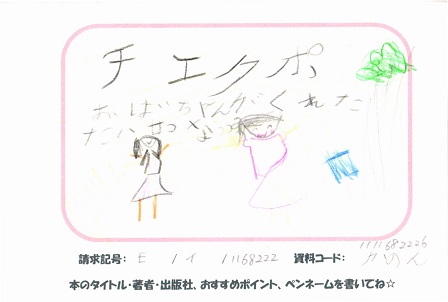 チエクポ
おばあちゃんがくれた
請求記号: E / イ / 11168222 資料コード: 1111682226
かめん
本のタイトル・著者・出版社、おすすめポイント、ペンネームを書いてね☆